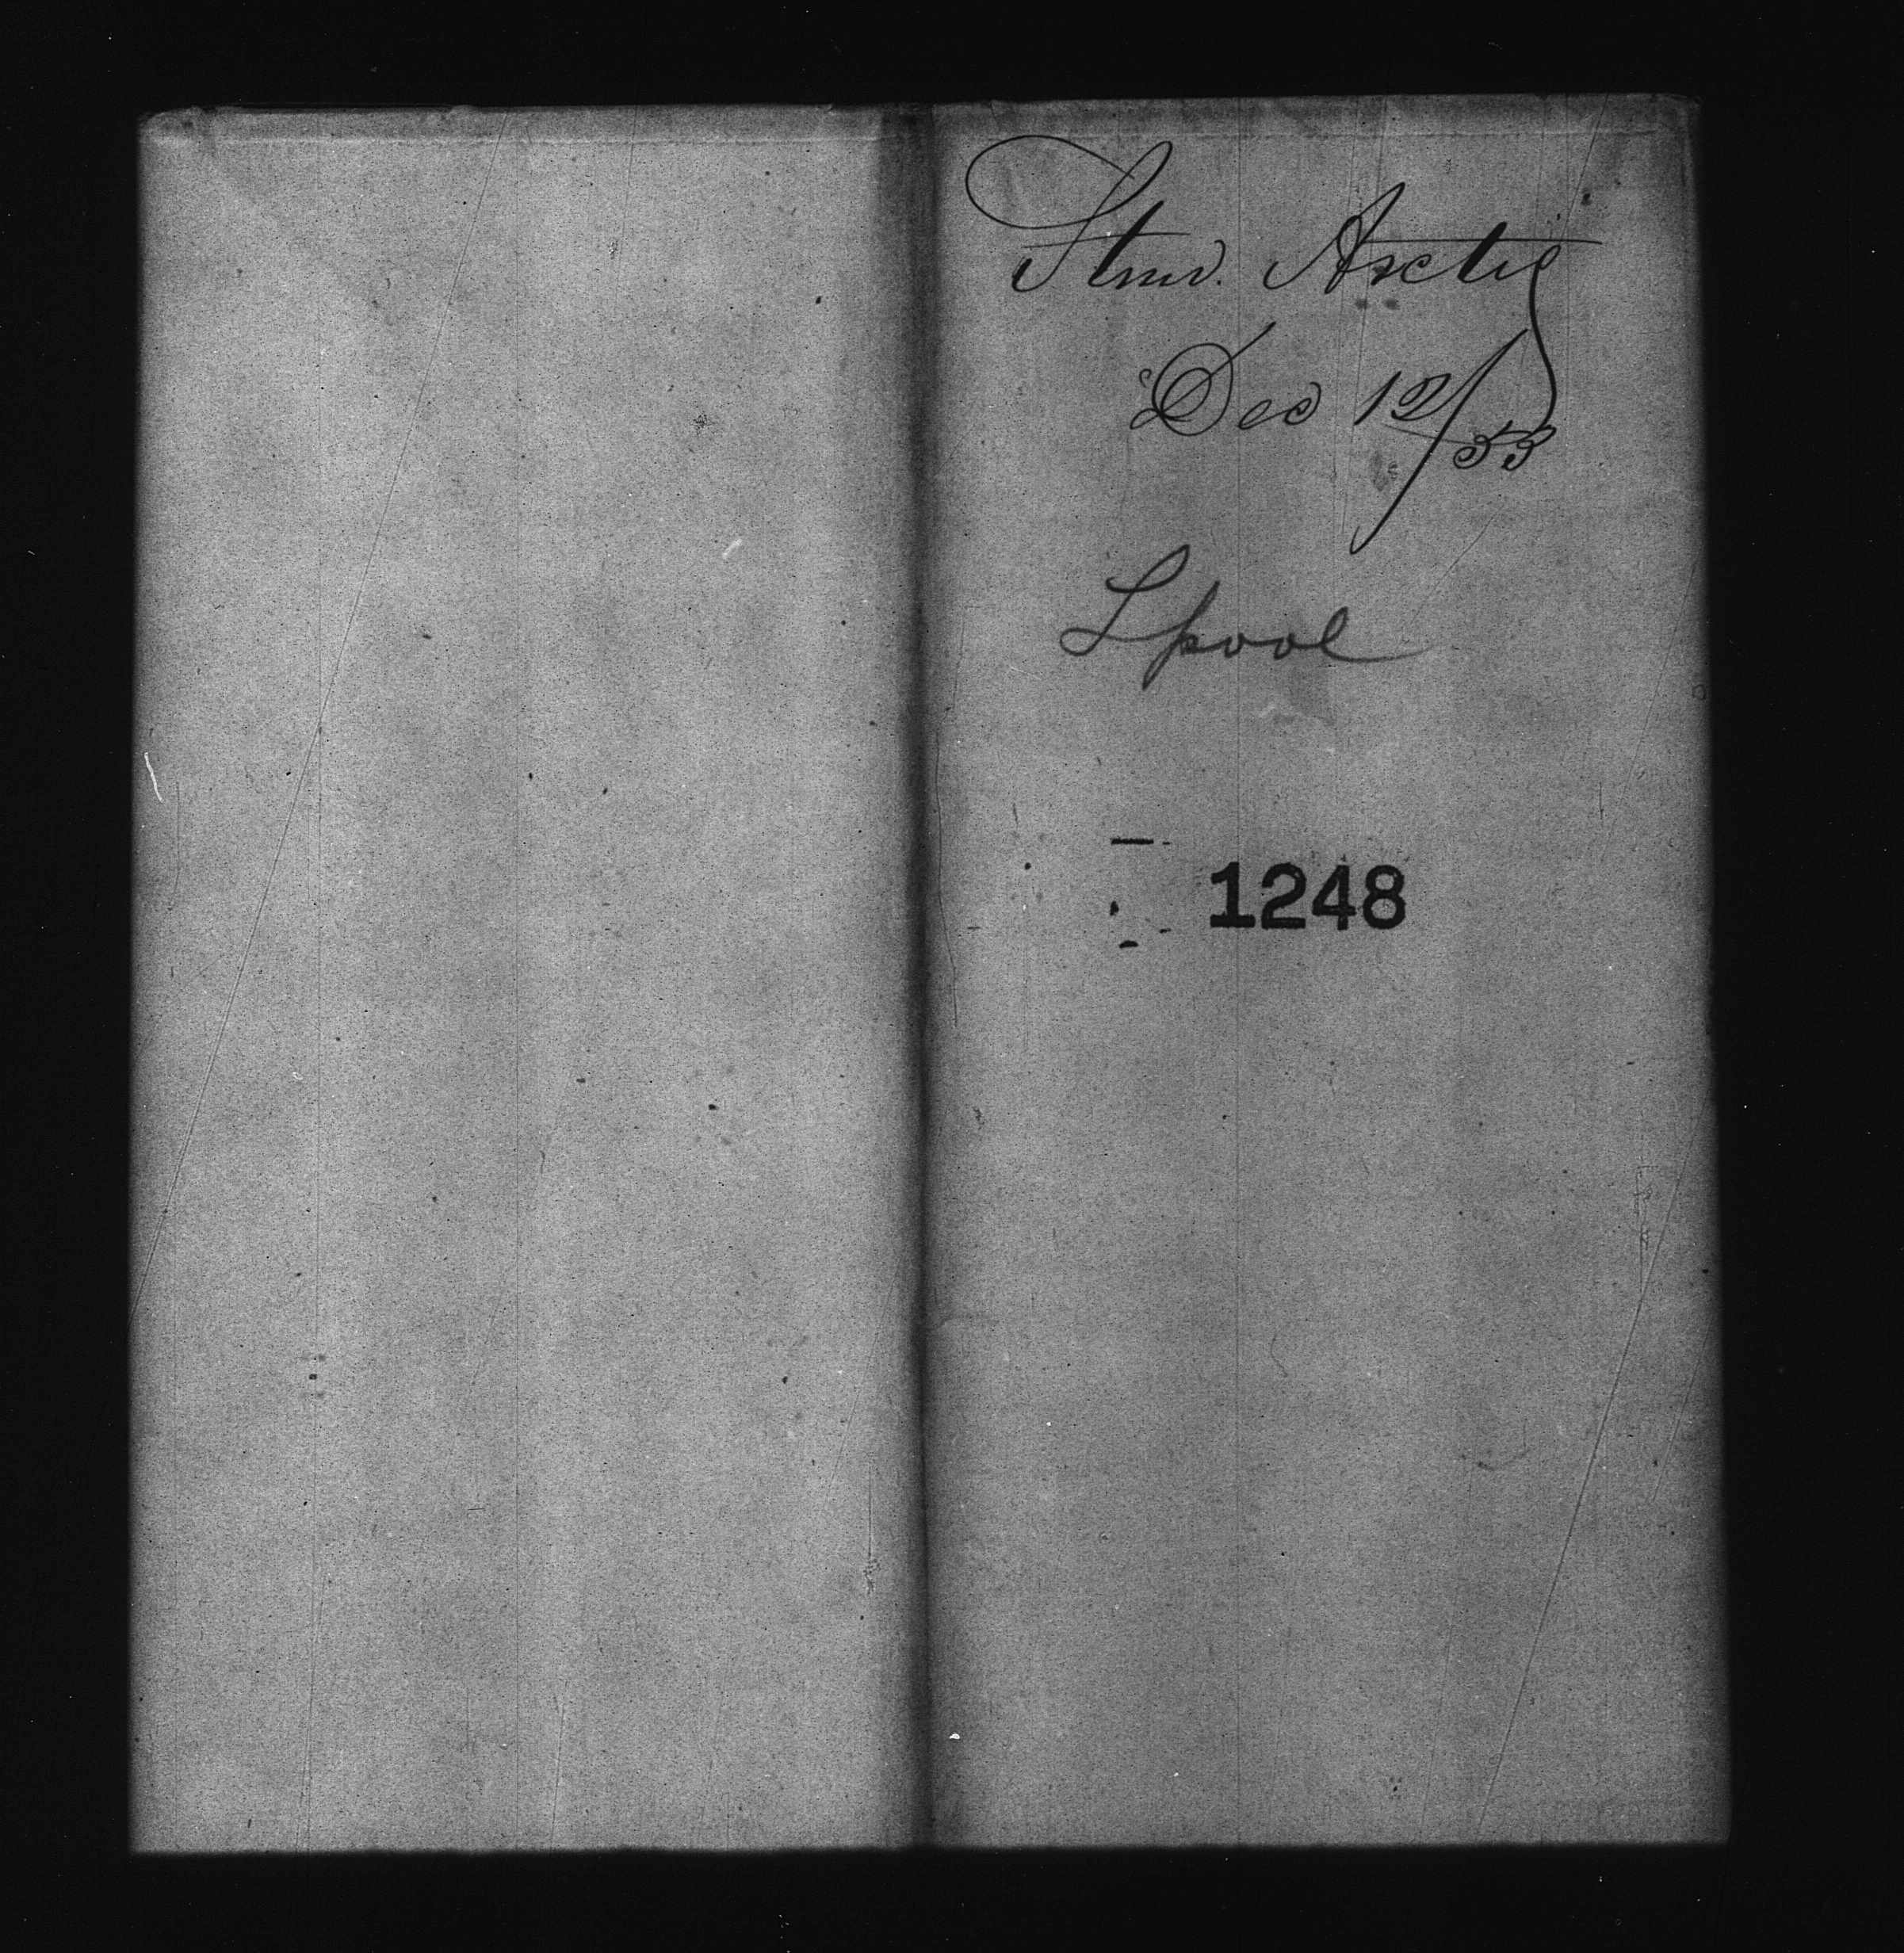 Stmr. Arctic
Dec 12/53
Lpool
1248